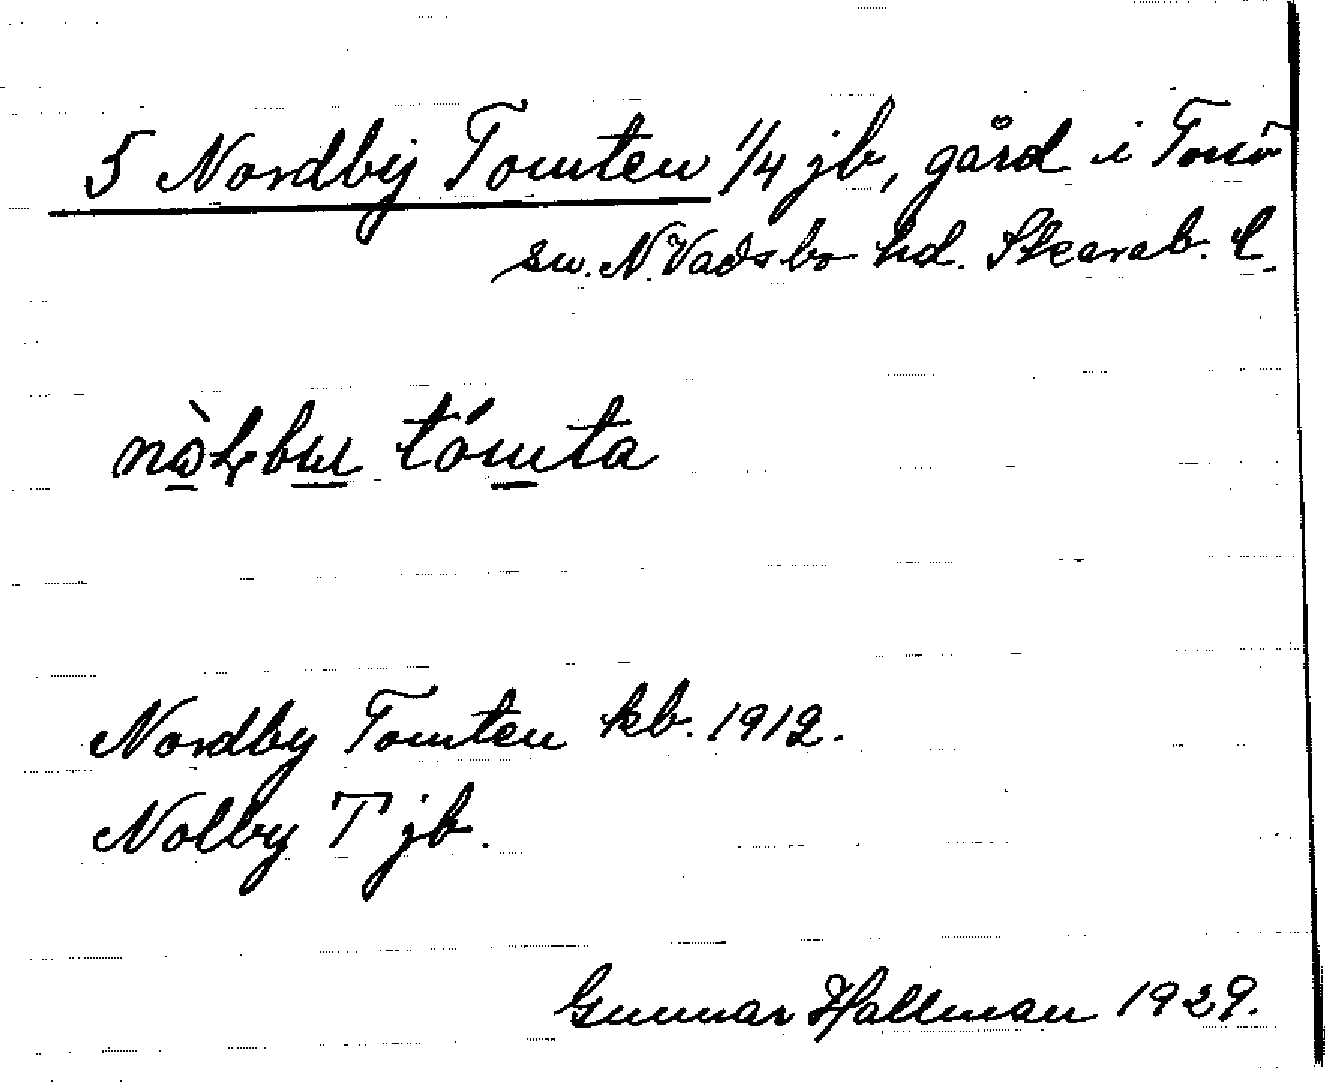 5 Nordby Tomten 1/4 jb, gård i Torsö
sn. N. Vadsbo hd. Skarab. l.
tómta
Nordby Tomten kb. 1912.
Nolby T jb.
Gunnar Hallman 1929.